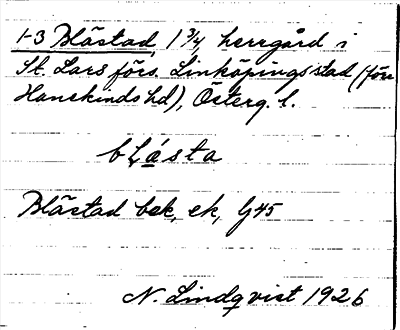 1-3 Blästad 1 3/4, herrgård i
St. Lars förs. Linköpings stad (förr
Hanekinds hd), Österg. l.
blásta
Blästad bek, ek, G45
N. Lindqvist 1926